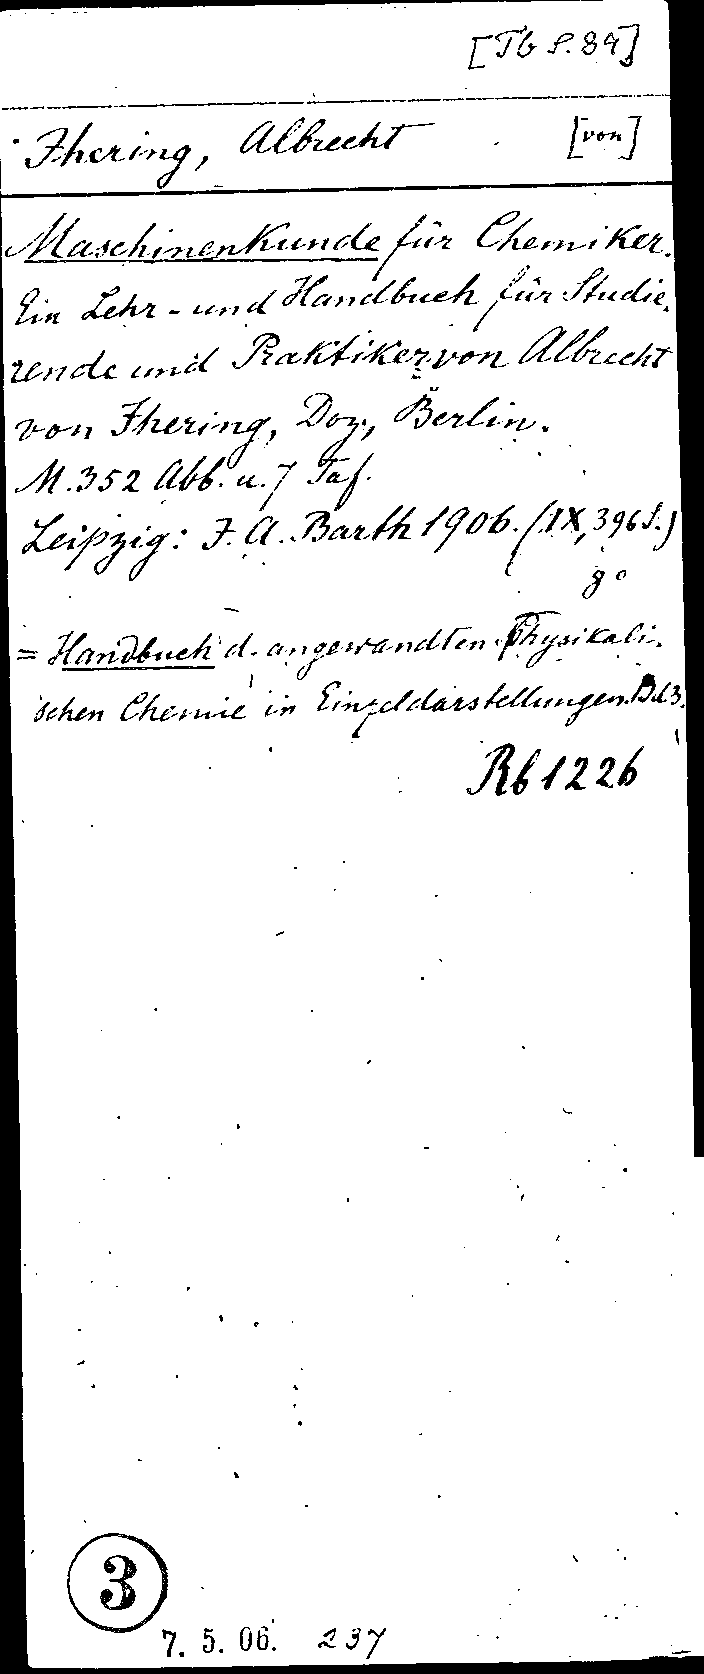 [Tb S. 89]
Ihering, Albrecht [von]
Maschinenkunde für Chemiker.
Ein Lehr- und Handbuch für Studie-
rende und Praktiker, von Albrecht
von Ihering, Doz., Berlin.
M. 352 Abb. u. 7 Taf.
Leipzig: J. A. Barth 1906. (IX, 396 S.)
8°
= Handbuch d. angewandten physikali-
schen Chemie in Einzeldarstellungen. Bd 3.
Rb 1226
3
7. 5. 06. 237